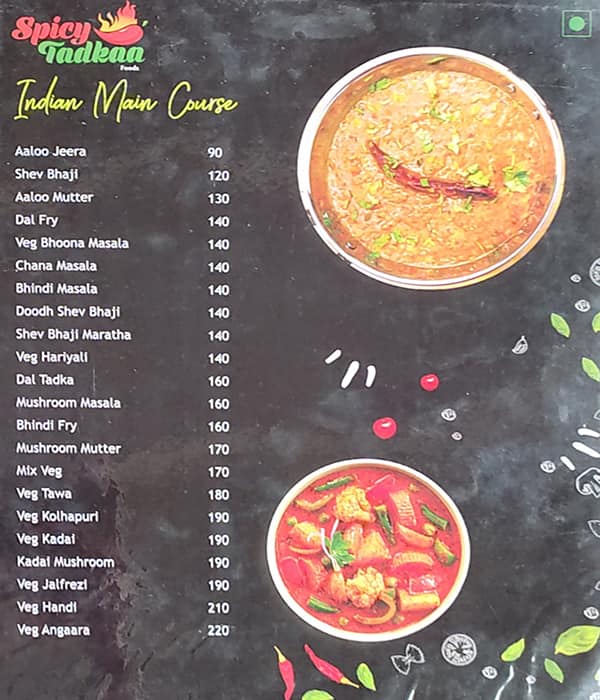 Spicy
Tadkaa
Foods
Indian Main Course
Aaloo Jeera 90
Shev Bhaji 120
Aaloo Mutter 130
Dal Fry 140
Veg Bhoona Masala 140
Chana Masala 140
Bhindi Masala 140
Doodh Shev Bhaji 140
Shev Bhaji Maratha 140
Veg Hariyali 140
Dal Tadka 160
Mushroom Masala 160
Bhindi Fry 160
Mushroom Mutter 170
Mix Veg 170
Veg Tawa 180
Veg Kolhapuri 190
Veg Kadai 190
Kadai Mushroom 190
Veg Jalfrezi 190
Veg Handi 210
Veg Angaara 220